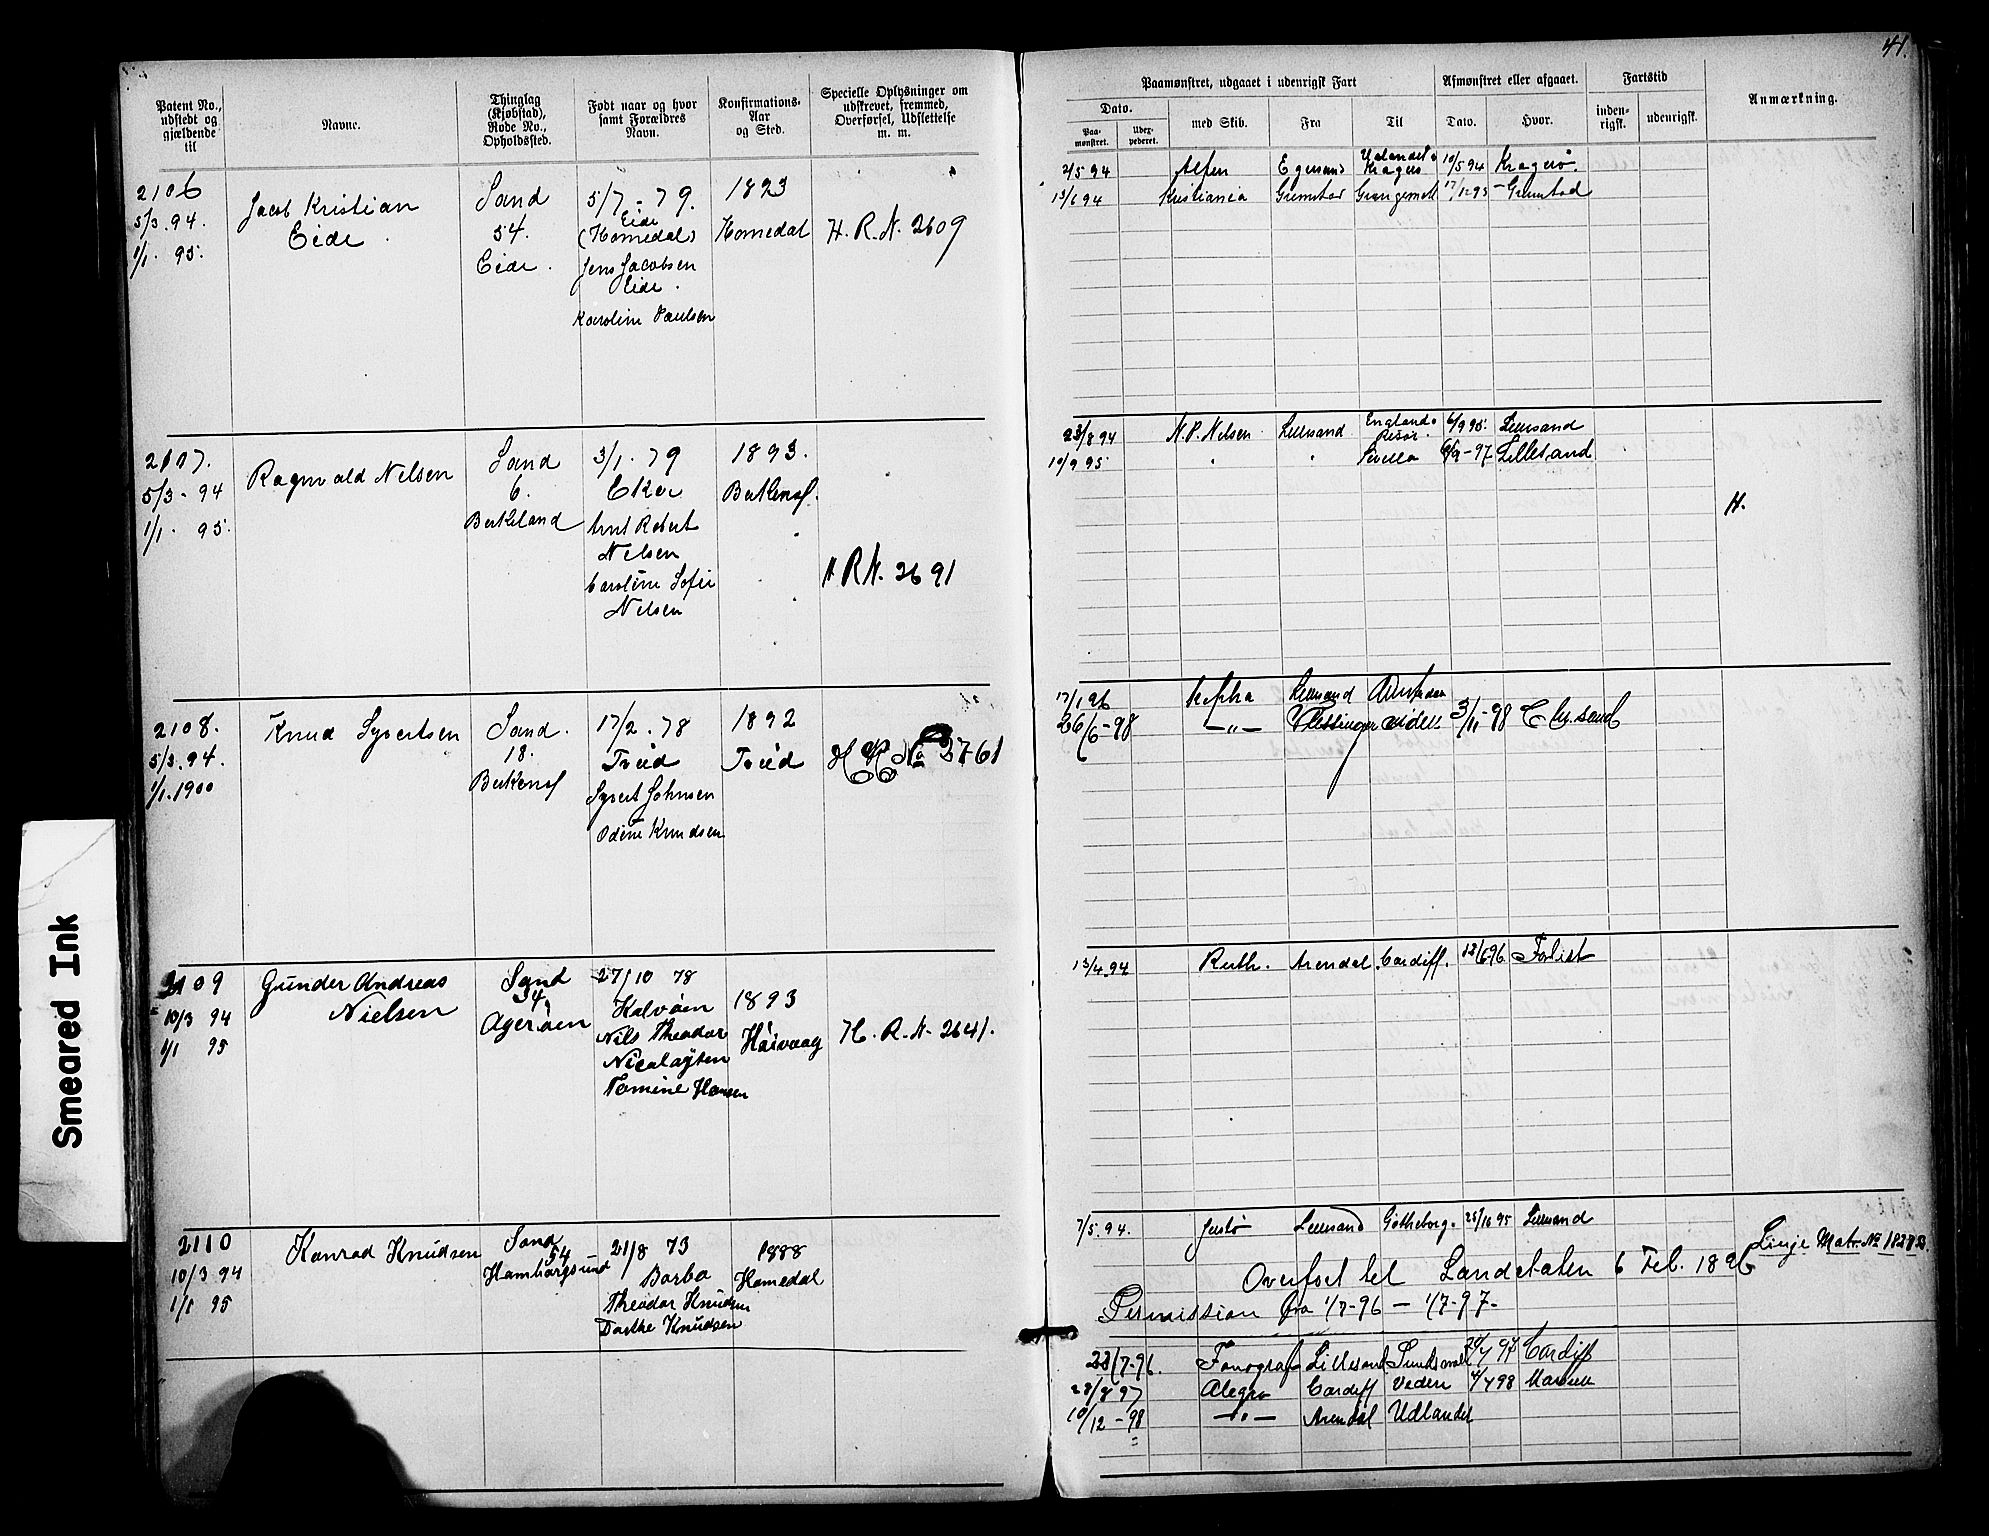 41.
Patent No.,
udstedt og
gjældende
til
Navne.
Thinglag
(Kjøbstad),
Rode No.,
Opholdssted.
Født naar og hvor
samt Forældres
Navn.
Konfirmations-
Aar
og Sted.
Specielle Oplysninger om
udskrevet, fremmed,
Overførsel, Udslettelse
m. m.
Paamønstret, udgaaet i udenrigsk Fart
Dato.
Paa-
mønstret.
Udex-
pederet.
med Skib.
Fra
Til
Afmønstret eller afgaaet.
Dato.
Hvor.
Fartstid
inden-
rigsk.
udenrigsk.
Anmærkning.
2106
5/3. 94.
1/1. 95.
Jacob Kristian
Eide
Sand
54.
Eide.
5/7 - 79.
Eide
(Homedal)
Jens Jacobsen
Eide.
Karoline Paulsen
1893
Homedal
H. R. N. 2609
2/5 94 Alfen Egersund Udlandet Kragerø 10/5 94 Kragerø.
13/6 94 Kristiania Grimstad Grangemoth 17/12 95 Grimstad
2107.
5/3 - 94
1/1. 95.
Ragnvald Nelsen
Sand
6.
Berkeland
3/1. 79
Eker
Arnt Robert
Nelsen
Caroline Sofie
Nelsen
1893.
Birkenes.
H R N. 2691
23/8 94 N. P. Nelsen Lillesand England Risør. 6/9 95. Lillesand
10/9 95. " " 97 Lillesand
H.
2108.
5/3. 94.
1/1. 1900
Knud Syvertsen
Sand.
18.
Birkenes
17/2. 78
Treid
Syvert Johnsen
Odine Knudsen
1892
Treid
H R No 2761
17/1 96 Kepha Lillesand
26/6-98 — " — Vlissingen 3/11-98 Chr.sand
2109
10/3 94
1/1 95
Gunder Andreas
Nielsen
Sand
34
Agerøen
27/10 78
Kalvøen
Nils Theodor
Nicolaysen
Tomine Hansen
1893
Høivaag
H. R. N. 2641.
13/4. 94 Ruth. Arendal. Cardiff. 13/6 96 Forlist
2110
10/3 94
1/1 95
Konrad Knudsen
Sand
54
Hamborgsund
21/8 73
Barbo
Theodor Knudsen
Dorthe Knudsen
1888
Homedal
7/5. 94. Justø Lillesand Gøtheborg. 25/10 95 Lillesand
Overført til Landetaten 6 Feb. 1896
Linje Mat. No
Permission fra 1/7-96 — 1/7-97-
23/7-96. Fonograf Lillesand Sundsvall 97 Cardiff
28/8 97 Alegro Cardiff Veden 4/4 98
10/12 - 98 — " — Arendal Udlandet
Smeared Ink